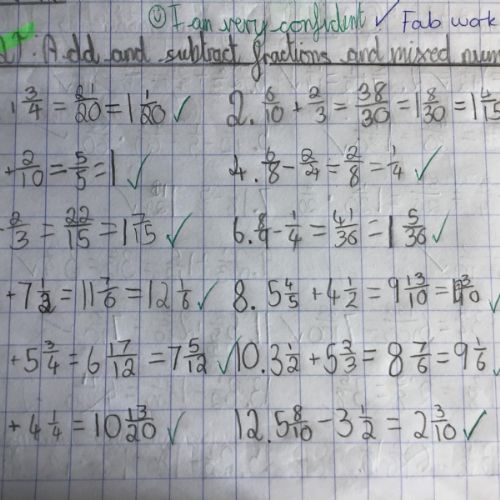 I am very confident ✓ Fab work
Add and subtract fractions and mixed num
3/4 = 21/20 = 1 1/20 ✓ 2. 6/10 + 2/3 = 38/30 = 1 8/30 = 1 4/15
+ 2/10 = 5/5 = 1 ✓ 4. 6/8 - 2/4 = 2/8 = 1/4 ✓
2/3 = 22/15 = 1 7/15 ✓ 6. 8/9 - 1/4 = 41/36 = 1 5/36 ✓
+ 7 1/2 = 11 7/6 = 12 1/6 ✓ 8. 5 4/5 + 4 1/2 = 9 13/10 = 3/10
+ 5 3/4 = 6 17/12 = 7 5/12 ✓ 10. 3 1/2 + 5 2/3 = 8 7/6 = 9 1/6
+ 4 1/4 = 10 13/20 ✓ 12. 5 8/10 - 3 1/2 = 2 3/10 ✓